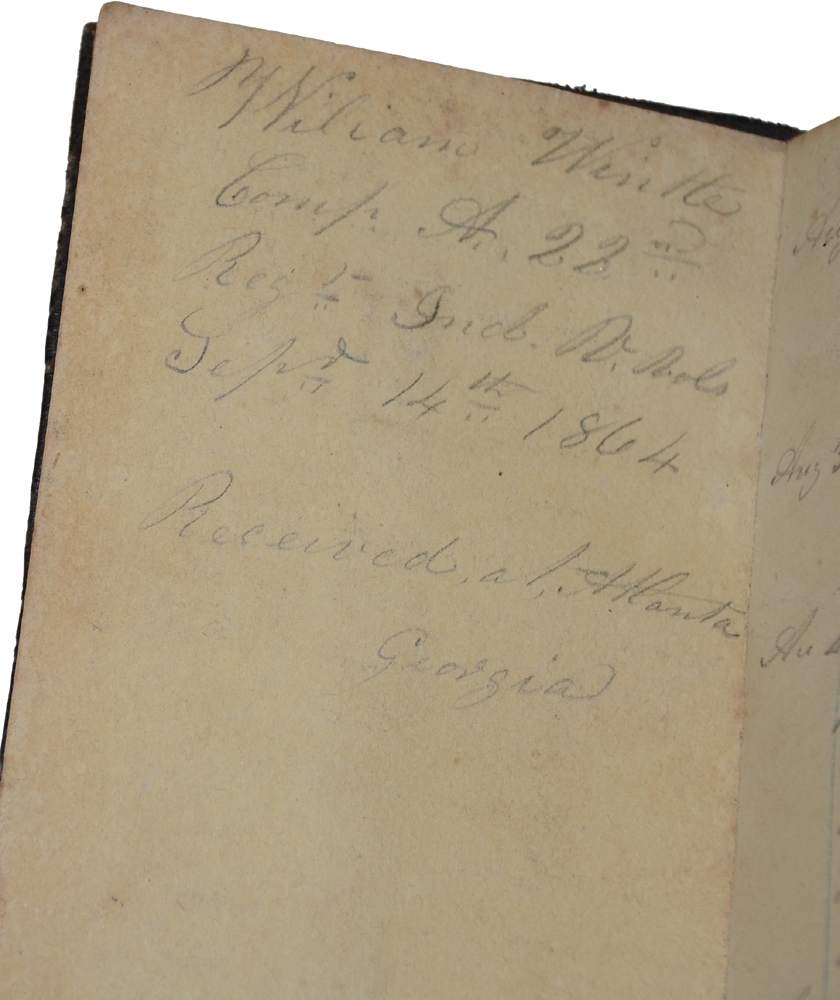 Wiliam Winkle
Comp. A. 22nd
Regt Ind. V. Vols
Sept 14th 1864
Received at Atlanta
Georgia
Aug